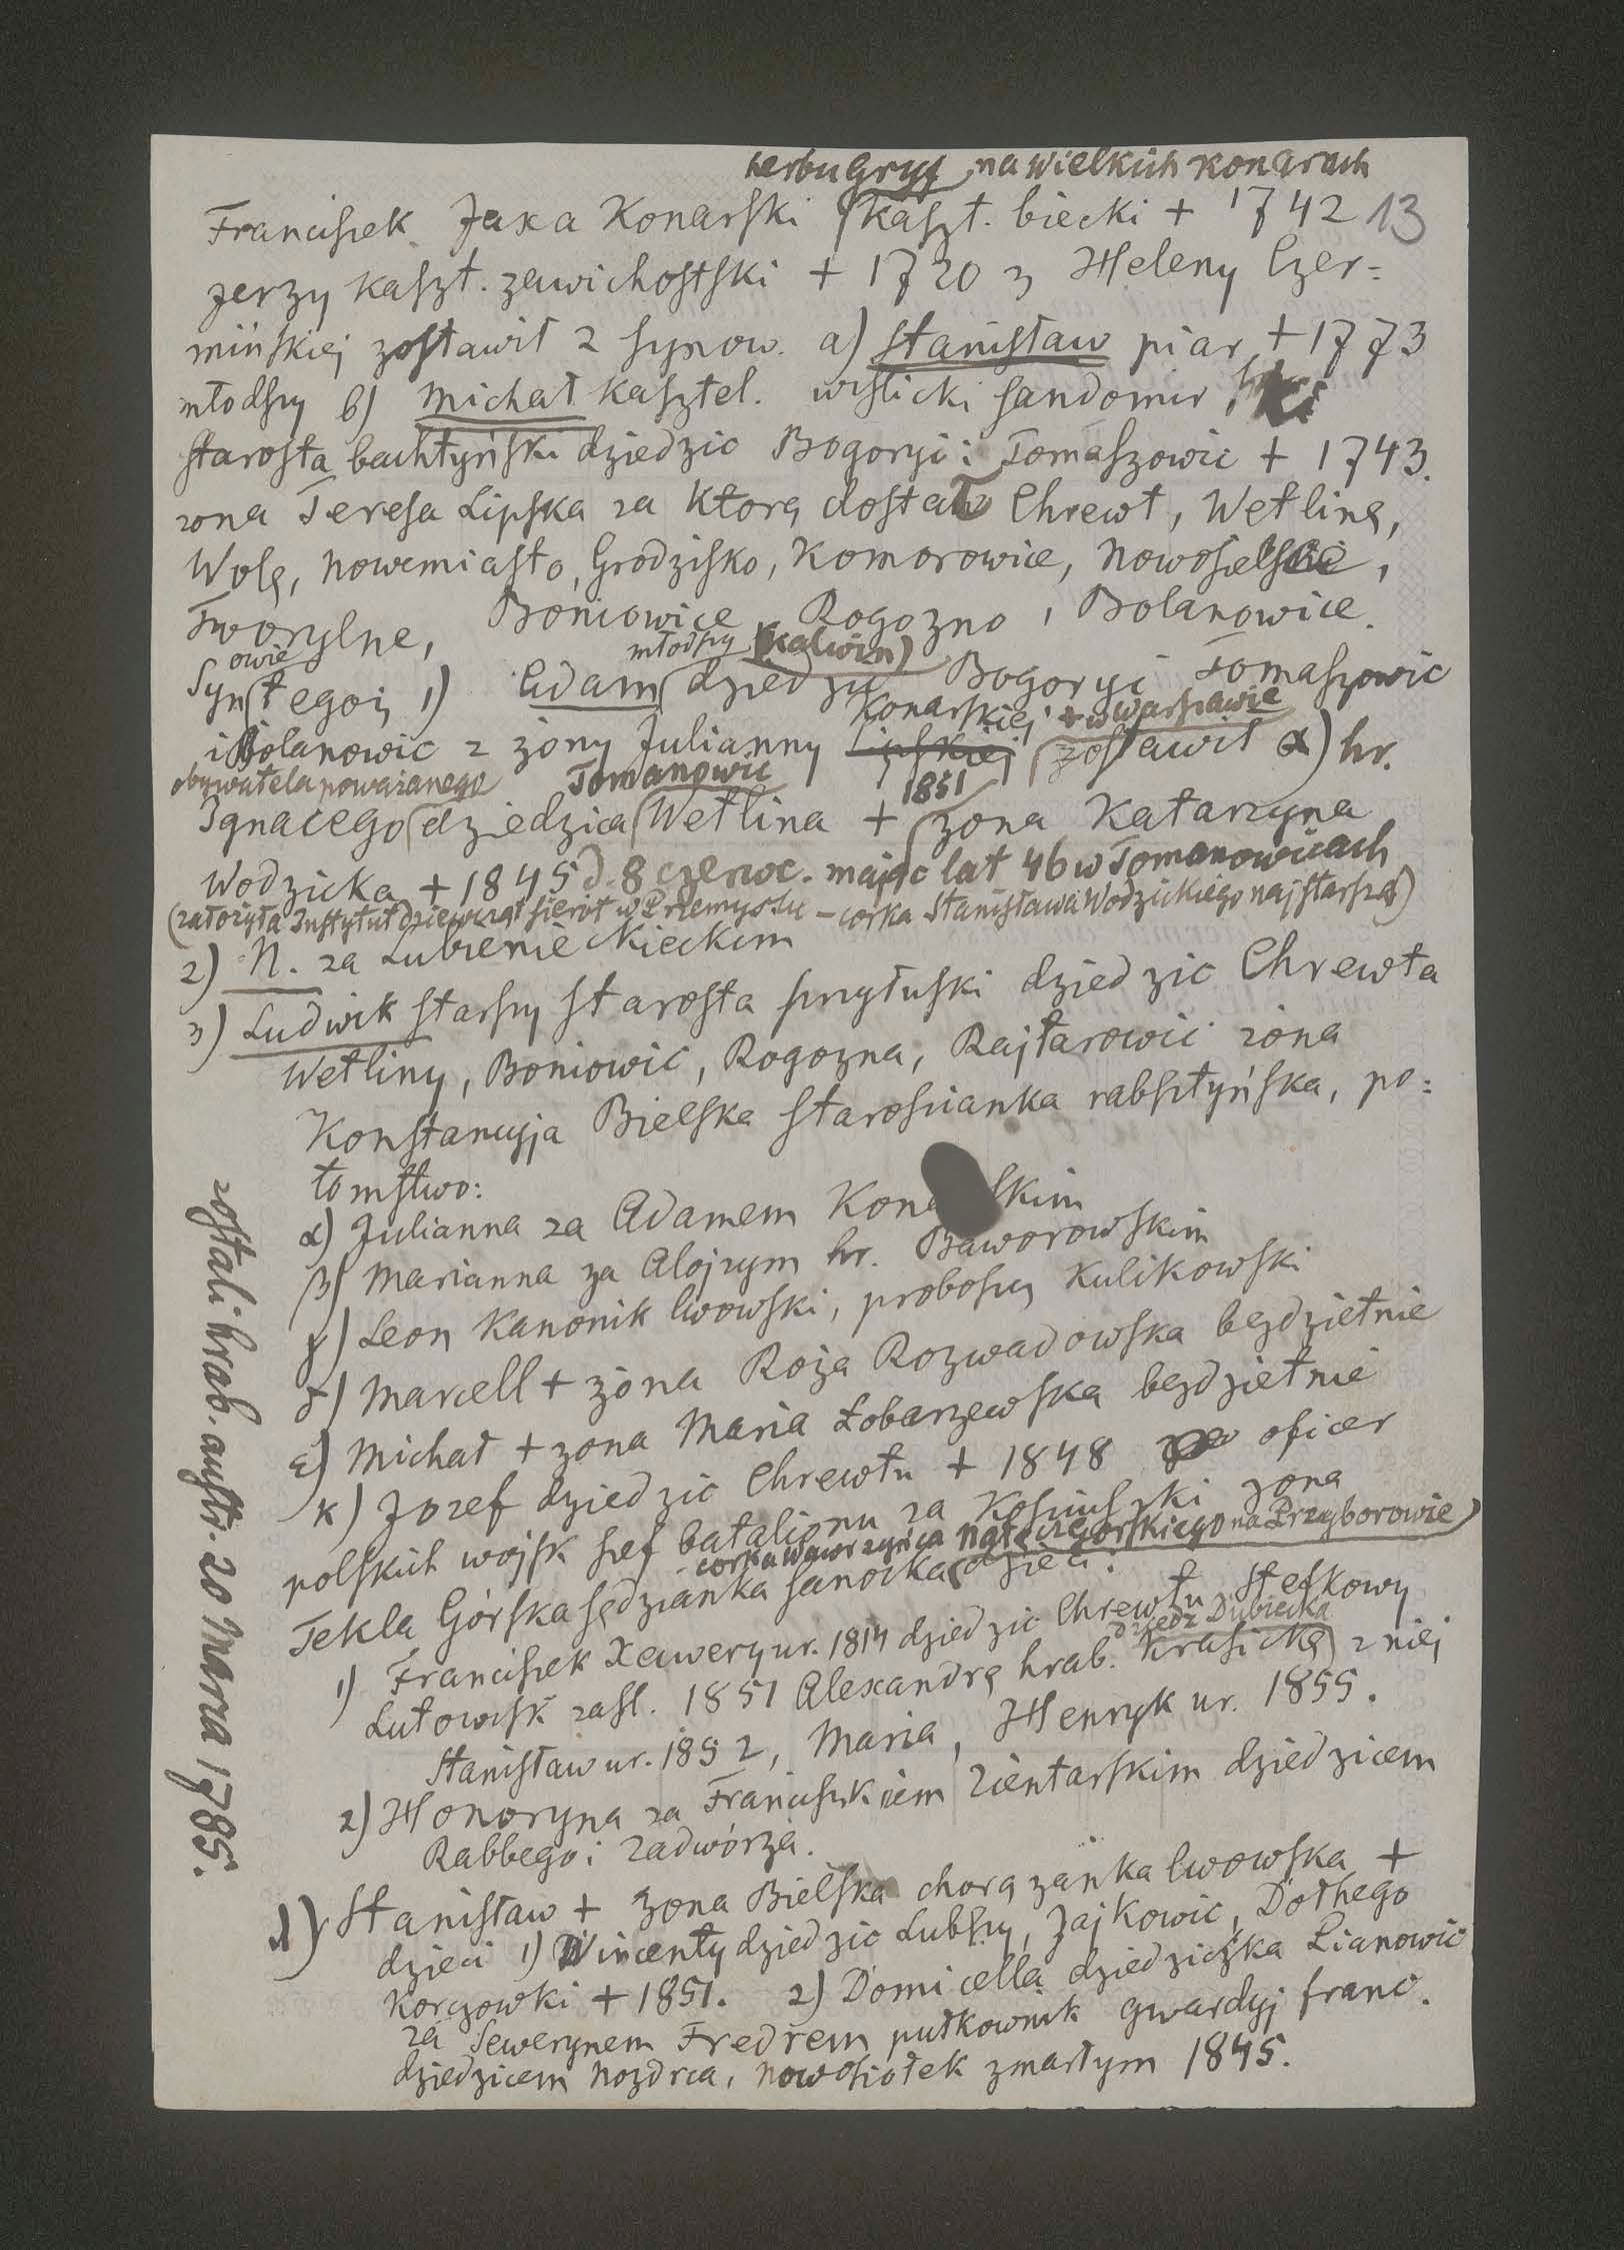 herbu Gryf na wielkich Konarach
Franciszek Jaxa Konarski kaszt. biecki + 1742 13
Jerzy kaszt. zawichostski + 1720 z Heleny Czer=
mińskiej zostawił 2 synow. a) Stanisław pijar + 1773
młodszy b) Michał kasztel. wislicki sandomir ski
starosta bachtyński dziedzic Bogoryi i Tomaszowic + 1743.
zona Teresa Lipska za Ktorą dostał Chrewt, Wetlinę,
Wolę, Nowemiasto, Grodzisko, Komorowice, Nowosielskie,
Tworylne, Boniowice Rogozno, Bolanowice.
owie młodszy (Kalwin)
Syn tegoż 1) Adam dziedzic Bogoryi Tomaszowic
Konarskiej + w Warszawie
i Bolanowic z żony Julianny Lipskiej zostawił α) hr.
obywatela poważanego Tomanowic 1851
Ignacego dziedzica Wetlina + żona Katarzyna
Wodzicka + 1845 d. 8 czerwc. mając lat 46 w Tomanowicach
(założyła Instytut dziewcząt sierot w Przemyslu – corka Stanisława Wodzickiego najstarsza)
2) N. za Lubienieckieckim
3) Ludwik starszy starosta przyłuski dziedzic Chrewta
Wetliny, Boniowic, Rogozna, Rajtarowic żona
Konstancyja Bielska starościanka rabsztyńska, po=
tomstwo:
α) Julianna za Adamem Kona skim
β) Marianna za Alojzym hr. Baworowskim
γ) Leon Kanonik lwowski, proboszcz Kulikowski
δ) Marcell + żona Roża Rozwadowska bezdzietnie
ε) Michał + zona Maria Łobarzewska bezdzietnie
κ) Jozef dziedzic Chrewtu + 1848 oficer
polskich wojsk szef batalionu za Kosciuszki zona
corka Wawrzyńca Nałęcz Gorskiego na Przyborowie)
Tekla Górska sędzianka sanocka dzieci:
1) Franciszek Xawery ur. 1814 dziedzic Chrewtu Stefkowy
dziedz Dubiecka
Lutowisk zasl. 1851 Alexandrę hrab. Krasicką z niej
Stanisław ur. 1852, Maria, Henryk ur. 1855.
2) Honoryna za Franciszkiem Zientarskim dziedzicem
Rabbego i Zadwórza.
λ) Stanisław + żona Bielska chorążanka lwowska +
dzieci 1) Wincenty dziedzic Lubszy, Zajkowic, Dołhego
Korczowki + 1851. 2) Domicella dziedziczka Lianowic
za Sewerynem Fredrem pułkownik gwardyj franc.
dziedzicem Nozdrca, Nowosiołek zmarłym 1845.
zostali hrab. austr. 20 Marca 1785.